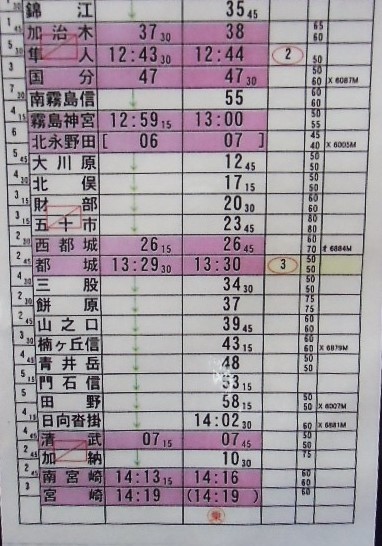 錦江 35 45
加治木 37 30 38 65 60
隼人 12:43 30 12:44 ② 50
国分 47 47 30 50 60 X 6087M
南霧島信 55
霧島神宮 12:59 15 13:00 50 55
北永野田 [ 06 07 ] 45 40 X 6005M
大川原 12 45 50 50
北俣 17 15 50 50
財部 20 30 60 60
五十市 23 45 80 80
西都城 26 15 26 45 60 70 オ 6884M
都城 13:29 30 13:30 ③ 50 50
三股 34 30 50 50
餅原 37 75 75
山之口 39 45 60 60
楠ヶ丘信 43 15 60 60 X 6879M
青井岳 48 50 50
門石信 53 15
田野 58 15 50 50 X 6007M
日向沓掛 14:02 30 60 X 6881M
清武 07 15 07 45 50 50
加納 10 30 75
南宮崎 14:13 15 14:16 60 60
宮崎 14:19 (14:19) 60
乗